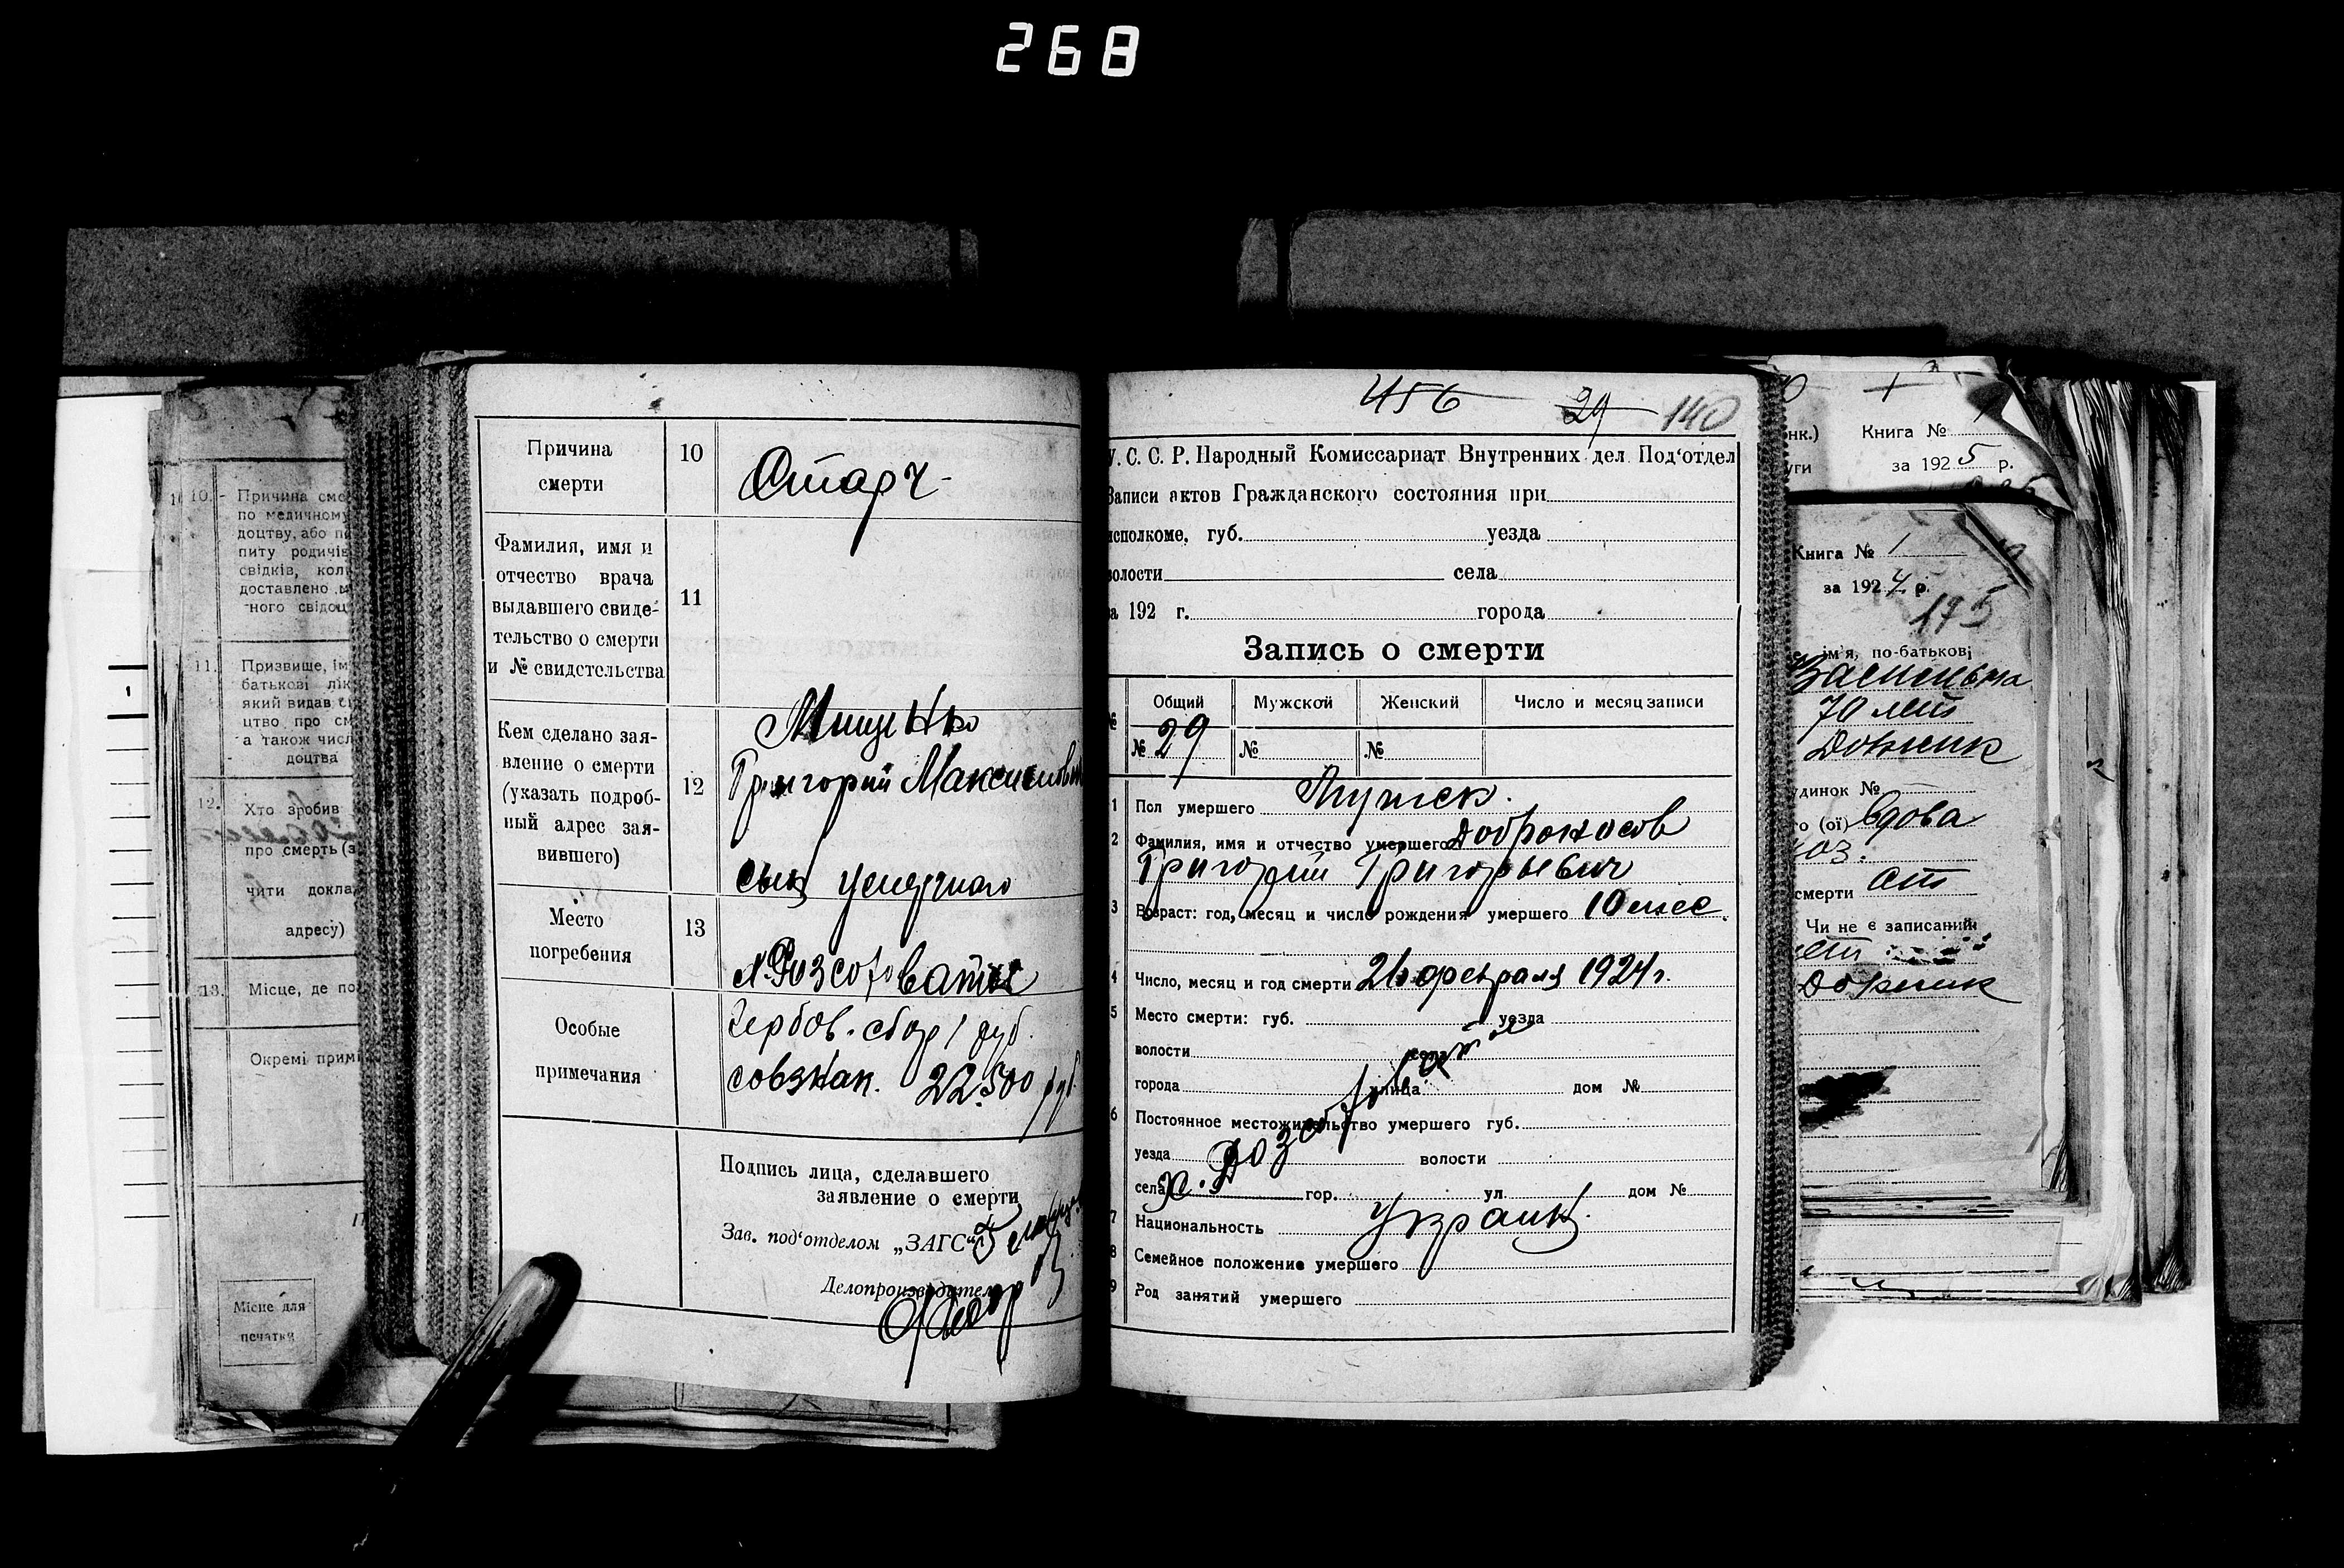 268
10.
Причина
по медичному
доцтву, або
питу родичів
свідків, кол
доставлено
-ного свідоц
11.
Призвище, ім
батькові лік
який видав
цтво про см
а також числ
доцтва
12.
Хто зробив
про смерть
чити докла
адресу)
13.
Місце, де по
Окремі примі
Місце для
печатки
Причина
смерти
10
Старч-
Фамилия, имя и
отчество врача
выдавшего свиде-
тельство о смерти
и № свидетельства
11
Кем сделано зая-
вление о смерти
(указать подроб-
ный адрес зая-
вившего)
12
Мищенко
Григорий Максимови
сын
Место
погребения
13
Особые
примечания
Гербов. сбор 1 руб.
совзнак. 22.500 руб
Подпись лица, сделавшего
заявление о смерти
Зав. под‘отделом „ЗАГС“
Делопроизводител
456 29 140
У. С. С. Р. Народный Комиссариат Внутренних дел Под‘отдел
Записи актов Гражданского состояния при
исполкоме, губ. уезда
волости села
за 192 г. города
Запись о смерти
Общий Мужской Женский Число и месяц записи
№ 29 № №
1 Пол умершего Мужск.
2 Фамилия, имя и отчество умершего Доброносов
Григорий Григорьевич
3 Возраст: год, месяц и число рождения умершего 10 мес.
4 Число, месяц и год смерти 26 февраля 1924 г.
5 Место смерти: губ. уезда
волости села
города улица дом №
6 Постоянное местожительство умершего губ.
уезда волости
села гор. ул. дом №
7 Национальность Украин.
8 Семейное положение умершего
9 Род занятий умершего
Книга №
за 1925 р.
Книга № 1
за 1924 р.
175
ім‘я, по-батькові
70 лет
удинок №
Вдова
смерти
Чи не є записаний